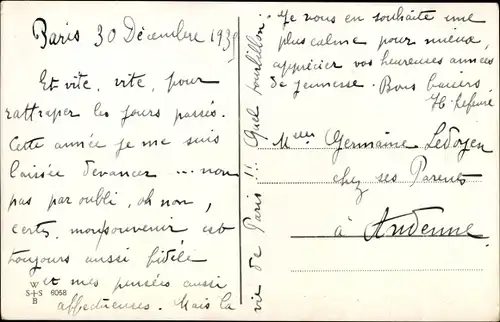 Paris 30 Décembre 1935
Et vite, vite, pour
rattraper les jours passés.
Cette année je me suis
laissée devancer ... non
pas par oubli, oh non,
certes, mon souvenir est
toujours aussi fidèle
et mes pensées aussi
affectueuses. Mais la
vie de Paris !! Quel tourbillon!..
Je vous en souhaite une
plus calme pour mieux
apprécier vos heureuses années
de jeunesse. Bons baisers
H. Lefevre
Melle Germaine Ledoyen
chez ses Parents
à Andenne
W
S+S 6058
B